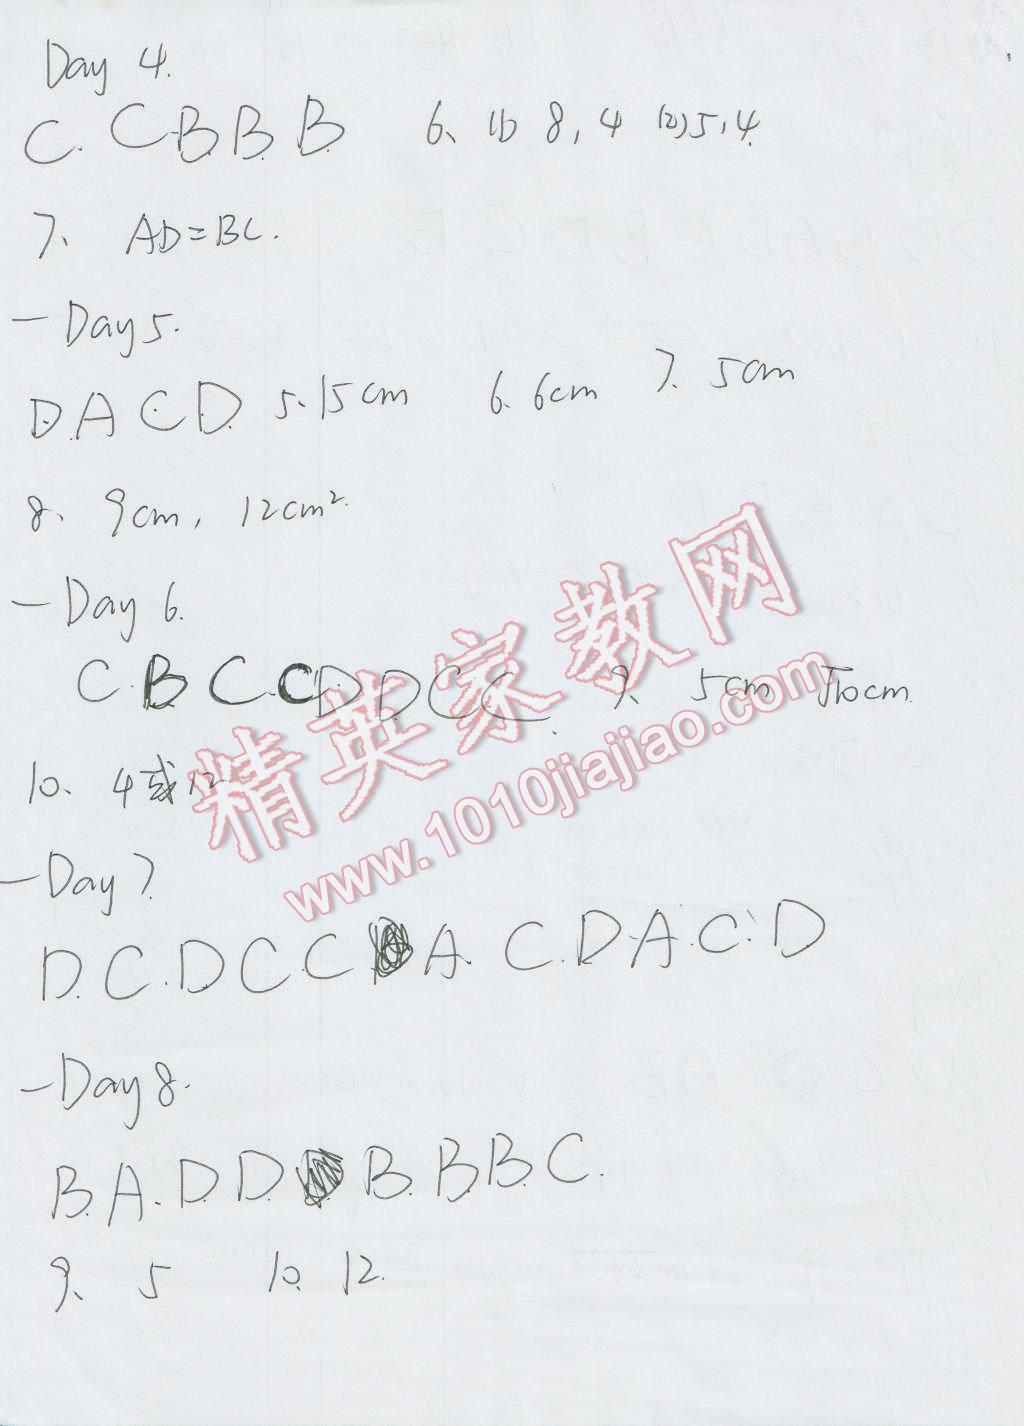 Day 4.
C. C B. B. B 6、(1) 8, 4 (2) 5, 4.
7、 AD=BC.
一 Day 5.
D. A C D. 5、15cm 6、6cm 7、5cm
8、 9cm, 12cm².
一 Day 6.
C. B C. C D D C C 9、 5cm √10cm.
10、 4或12
一 Day 7
D. C. D C C A. C. D. A. C. D
一 Day 8.
B. A. D D. B. B B C.
9、 5 10、12.
精英家教网
www.1010jiajiao.com